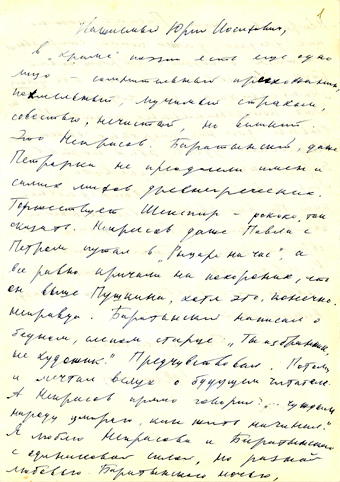 1
Юрий Иосифович,
В "храме" поэзии есть еще одно
лицо –
похмельный, мучимый страхом,
совестью, нечистый, но
Это Некрасов. Баратынский, даже
Петрарка не преодолели имен и
самих мифов древнегреческих.
Торжествует Шекспир – рококо, так
сказать. Некрасов даже Павла с
Петром путал в "Рыцаре на час", а
все равно кричали на похоронах, что
он выше Пушкина, хотя это, конечно,
неправда. Баратынский написал о
бедном, слепом старце "Ты избранник,
не художник". Предчувствовал. Потому
и мечтал вслух о будущем читателе.
А Некрасов прямо говорил: "
народу умираю, как жить начинал".
Я люблю Некрасова и Баратынского
с одинаковой силой, но разной
любовью. Баратынского ночью,